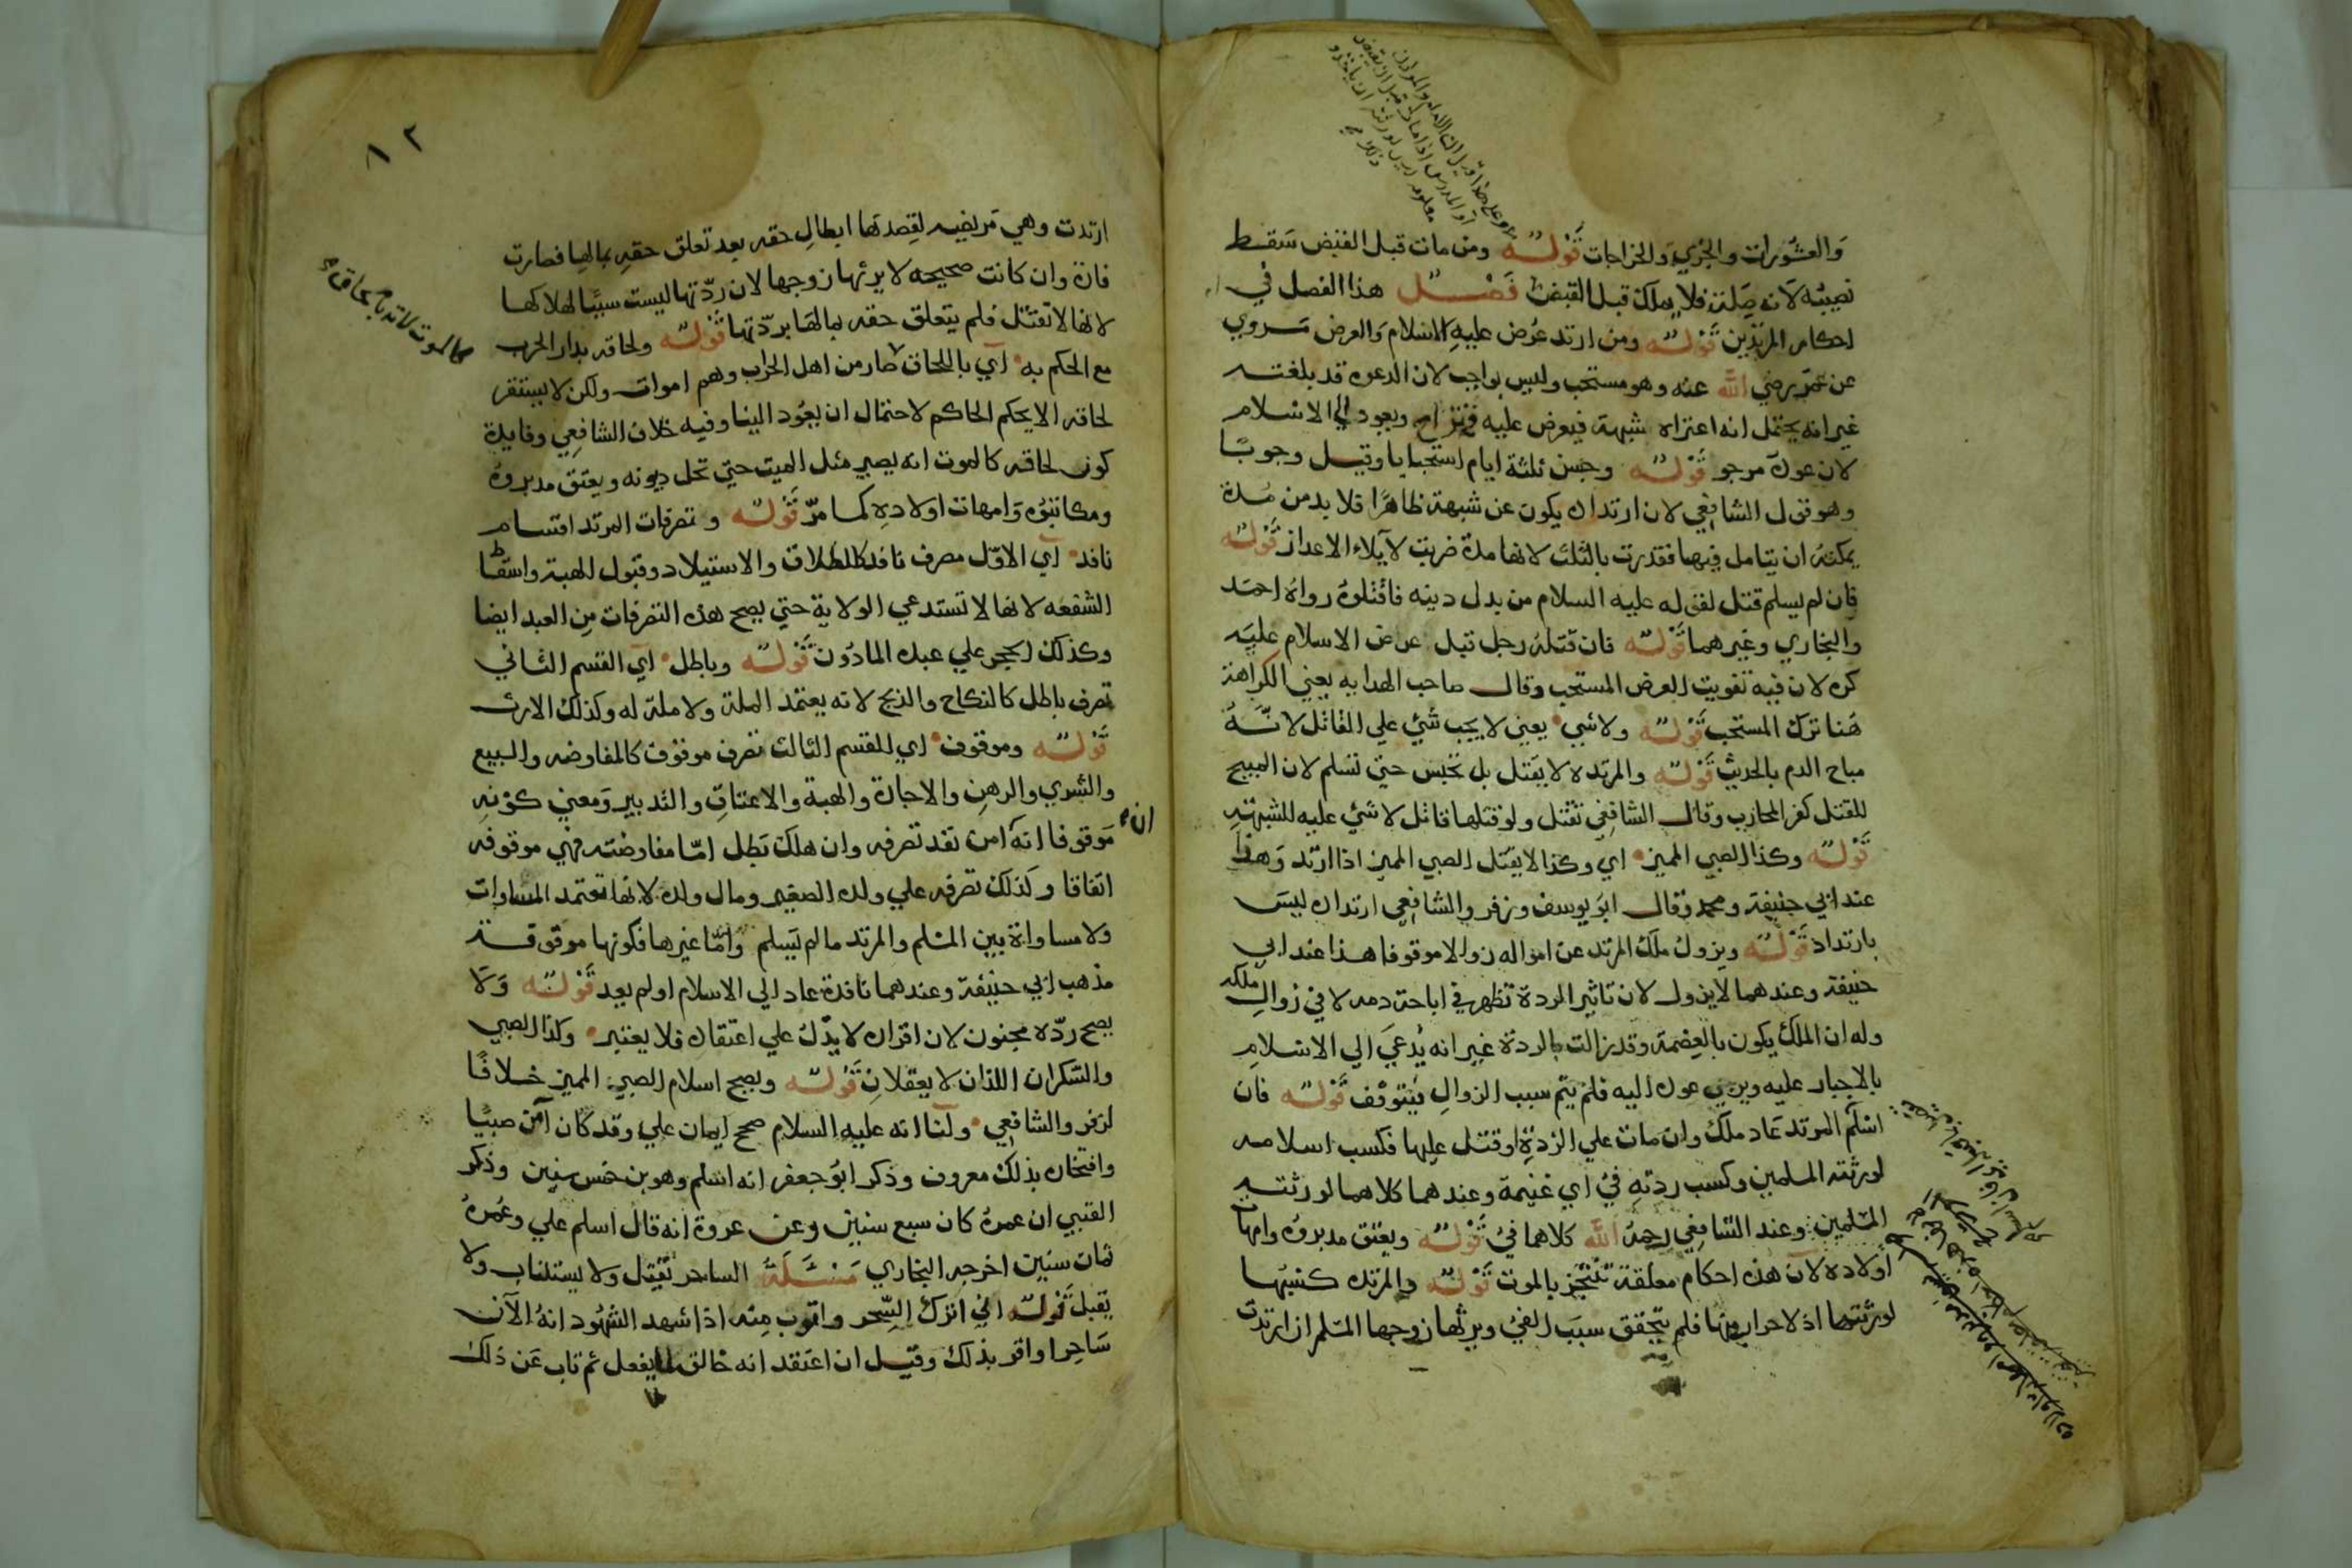 والعشورات والجزي والخراجات قوله ومن مات قبل القبض سقط
نصيبه لانه صلة فلا يملك قبل القبض فصل هذا الفصل في
احكام المرتدين قوله ومن ارتد عرض عليه الاسلام والعرض مروي
عن عمر رضي الله عنه وهو مستحب وليس بواجب لان الدعوة قد بلغته
غير انه يحتمل انه اعتراه شبهة فيعرض عليه فتزاح ويعود الي الاسلام
لان عوده مرجو قوله وحبس ثلثة ايام استحبابا وقيل وجوبا
وهو قول الشافعي لان ارتداده يكون عن شبهة ظاهرا فلا بد من مدة
يمكنه ان يتامل فيها فقدرت بالثلث لانها مدة ضربت لابلاء الاعذار قوله
فان لم يسلم قتل لقوله عليه السلام من بدل دينه فاقتلوه رواه احمد
والبخاري وغيرهما قوله فان قتله رجل قبل عرض الاسلام عليه
كره لان فيه تفويت العرض المستحب وقال صاحب الهدايه يعني الكراهة
هنا ترك المستحب قوله ولا شي يعني لا يجب شي علي القاتل لانه
مباح الدم بالحديث قوله والمرتده لا يقتل بل تحبس حتي تسلم لان المبيح
للقتل كفر المحارب وقال الشافعي تقتل ولو قتلها قاتل لا شي عليه للشبهة
قوله وكذا الصبي المميز اي وكذا لا يقتل الصبي المميز اذا ارتد وهذا
عند ابي حنيفة ومحمد وقال ابو يوسف وزفر والشافعي ارتداده ليس
بارتداد قوله ويزول ملك المرتد عن امواله زوالا موقوفا هذا عند ابي
حنيفة وعندهما لا يزول لان تاثير الردة تظهر في اباحة دمه لا في زوال ملكه
وله ان الملك يكون بالعصمة وقد زالت بالردة غير انه يدعي الي الاسلام
بالاجبار عليه ويرجي عوده اليه فلم يتم سبب الزوال فيتوقف قوله فان
اسلم المرتد عاد ملكه وان مات علي الردة او قتل عليها فكسب اسلامه
لورثته المسلمين وكسب ردته في اي غنيمة وعندهما كلاهما لورثته
المسلمين وعند الشافعي رحمه الله كلاهما في قوله ويعتق مدبروه وامهات
اولاده لان هذه احكام معلقة تتنجز بالموت قوله والمرتده كسبها
لورثتها اذ لا حراب منها فلم يتحقق سبب الفي ويرثها زوجها المسلم ان ارتدت
١٢
ارتدت وهي مريضه لقصدها ابطال حقه بعد تعلق حقه بمالها فصارت
فارة وان كانت صحيحه لا يرثها زوجها لان ردتها ليست سببا لهلاكها
لانها لا تقتل فلم يتعلق حقه بمالها بردتها قوله ولحاقه بدار الحرب
مع الحكم به اي باللحاق صار من اهل الحراب وهم اموات ولكن لا يستقر
لحاقه الا بحكم الحاكم لاحتمال ان يعود الينا وفيه خلاف الشافعي وفايدة
كون لحاقه كالموت انه يصير مثل الميت حتي تحل ديونه ويعتق مدبروه
ومكاتبوه وامهات اولاده كما مر قوله وتصرفات المرتد اقسام
نافد اي الاول تصرف نافد كالطلاق والاستيلاد وقبول الهبة واسقاط
الشفعه لانها لا تستدعي الولاية حتي يصح هذه التصرفات من العبد ايضا
وكذلك الحجر علي عبده الماذون قوله وباطل اي القسم الثاني
تصرف باطل كالنكاح والذبح لانه يعتمد الملة ولا ملة له وكذلك الارث
قوله وموقوف اي القسم الثالث تصرف موقوف كالمفاوضه والبيع
والشري والرهن والاجارة والهبة والاعتاق والتدبير ومعني كونه
موقوفا انه ان امن نفد تصرفه وان هلك بطل اما مفاوضته فهي موقوفه
اتفاقا وكذلك تصرفه علي ولده الصغير ومال ولده لانها تعتمد المساوات
ولا مساواة بين المسلم والمرتد ما لم يسلم واما غيرها فكونها موقوفة
مذهب ابي حنيفة وعندهما نافدة عاد الي الاسلام او لم يعد قوله ولا
يصح رده مجنون لان اقراره لا يدل علي اعتقاده فلا يعتبر وكذا الصبي
والسكران اللذان لا يعقلان قوله ويصح اسلام الصبي المميز خلافا
لزفر والشافعي ولنا انه عليه السلام صحح ايمان علي وقد كان امن صبيا
وافتخاره بذلك معروف وذكر ابو جعفر انه اسلم وهو بن خمس سنين وذكر
القتبي ان عمره كان سبع سنين وعن عروة انه قال اسلم علي وعمره
ثمان سنين اخرجه البخاري مسئلة الساحر يقتل ولا يستتاب ولا
يقبل قوله اني اترك السحر واتوب منه اذا شهد الشهود انه الآن
ساحرا واقر بذلك وقيل ان اعتقد انه خالق لما يفعل ثم تاب عن ذلك